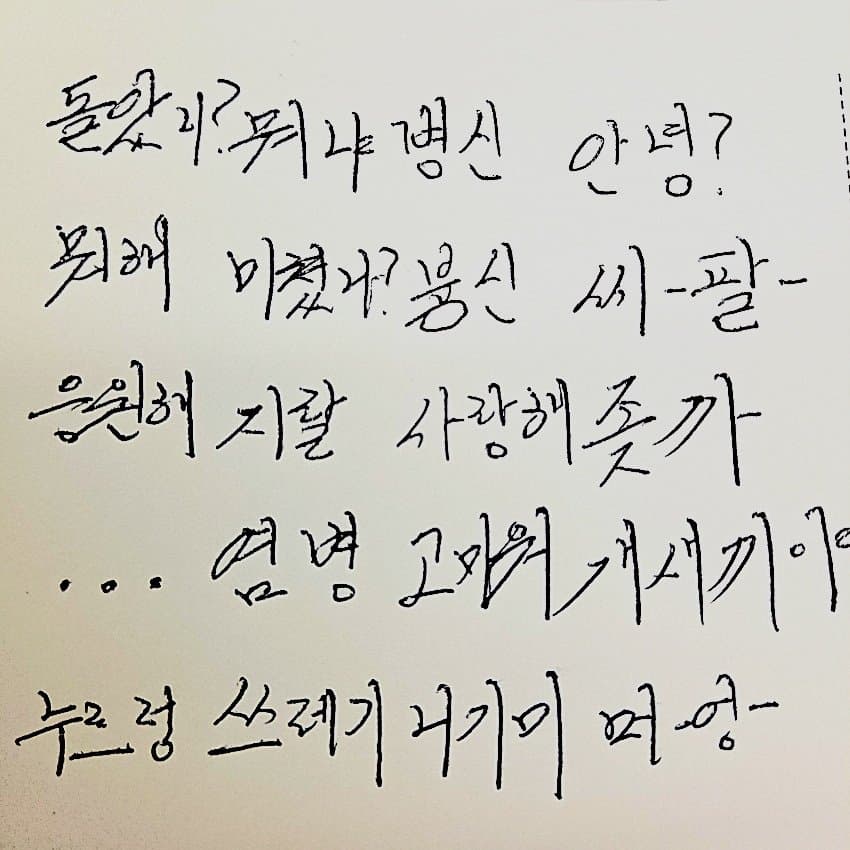 돌았니? 뭐냐 갱신 안녕?
뭐해 미쳤냐? 붕신 씨-팔-
응원해 지랄 사랑해 좃까
... 염병 고마워 개새끼야
누르렁 쓰레기 니기미 머-엉-